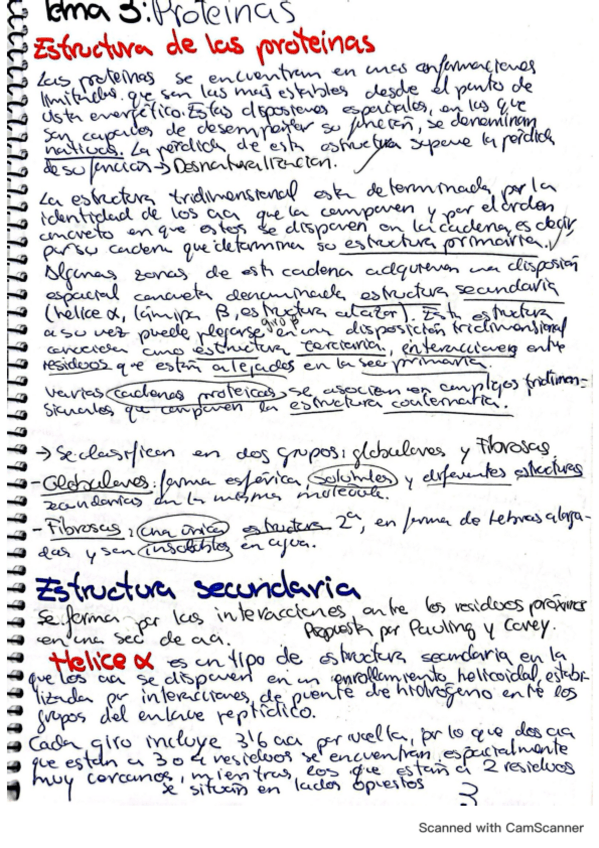 Tema 3: Proteinas
Estructura de las proteinas
Las proteinas se encuentran en unas conformaciones
limitadas que son las mas estables desde el punto de
vista energético. Estas disposiciones espaciales, en las que
son capaces de desempeñar su función, se denominan
nativas. La pérdida de esta estructura supone la pérdida
de su función → Desnaturalización.
La estructura tridimensional esta determinada por la
identidad de los aa que la componen y por el orden
concreto en que estos se disponen en la cadena, es decir,
por su cadena que determina su estructura primaria.
Algunas zonas de esta cadena adquieren una disposición
espacial concreta denominada estructura secundaria
(hélice α, lámina β, estructura al azar). Esta estructura
giro β
a su vez puede plegarse en una disposición tridimensional
conocida como estructura terciaria, interacciones entre
residuos que están alejados en la sec primaria.
Varias cadenas proteicas se asocian en complejos tridimen-
sionales que componen la estructura cuaternaria.
→ Se clasifican en dos grupos: globulares y Fibrosas.
- Globulares: forma esférica, solubles y diferentes estructuras
secundarias en la misma molécula.
- Fibrosas: una única estructura 2ª, en forma de hebras alarga-
das y son insolubles en agua.
Estructura secundaria
Se forma por las interacciones entre los residuos próximos
en una sec de aa. Propuesta por Pauling y Corey.
Helice α es un tipo de estructura secundaria en la
que los aa se disponen en un enrollamiento helicoidal, estabi-
lizada por interacciones de puente de hidrógeno entre los
grupos del enlace peptídico.
Cada giro incluye 3'6 aa por vuelta, por lo que dos aa
que están a 3 o 4 residuos se encuentran espacialmente
muy cercanos, mientras los que están a 2 residuos
se sitúan en lados opuestos
3
Scanned with CamScanner